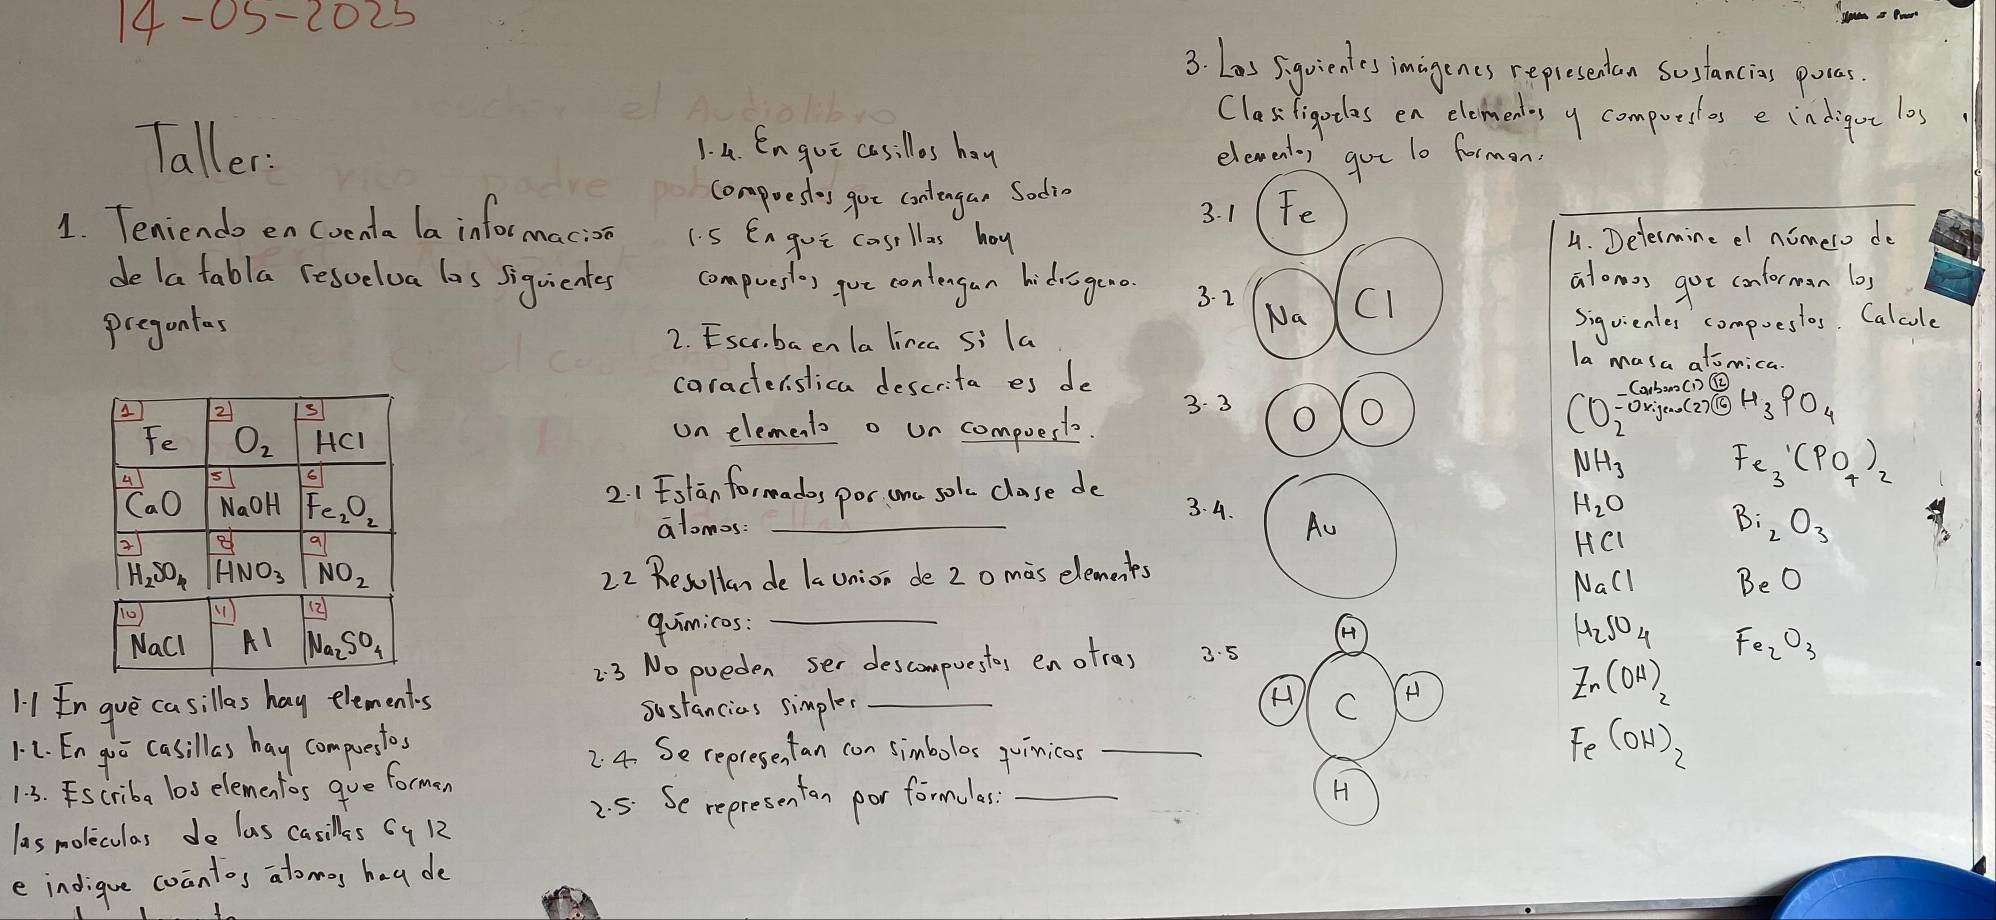 14-05-2025
Taller:
1. Teniendo en cuenta la información
de la tabla resuelva las siguientes
preguntas
1 2 3
Fe O₂ HCl
4 5 6
CaO NaOH Fe₂O₂
7 8 9
H₂SO₄ HNO₃ NO₂
10 11 12
NaCl Al Na₂SO₄
1.1 En qué casillas hay elementos
1.2. En qué casillas hay compuestos
1.3. Escriba los elementos que forman
las moléculas de las casillas 6 y 12
e indique cuántos átomos hay de
1.4. En qué casillas hay
compuestos que contengan Sodio
1.5 En qué casillas hay
compuestos que contengan hidrógeno.
2. Escriba en la línea si la
característica descrita es de
un elemento o un compuesto.
2.1 Están formados por una sola clase de
átomos:
2.2 Resultan de la unión de 2 o más elementos
químicos:
2.3 No pueden ser descompuestos en otras
sustancias simples
2.4. Se representan con símbolos químicos
2.5. Se representan por fórmulas:
3. Las siguientes imágenes representan sustancias puras.
Clasifíquelas en elementos y compuestos e indique los
elementos que lo forman:
3.1 Fe
3.2 Na Cl
3.3 O O
3.4. Au
3.5 H
H C H
H
4. Determine el número de
átomos que conforman los
siguientes compuestos. Calcule
la masa atómica.
CO₂ -Carbono(1) 12
-Oxígeno(2) 16
H₃PO₄
NH₃ Fe₃(PO₄)₂
H₂O Bi₂O₃
HCl
NaCl BeO
H₂SO₄ Fe₂O₃
Zn(OH)₂
Fe(OH)₂